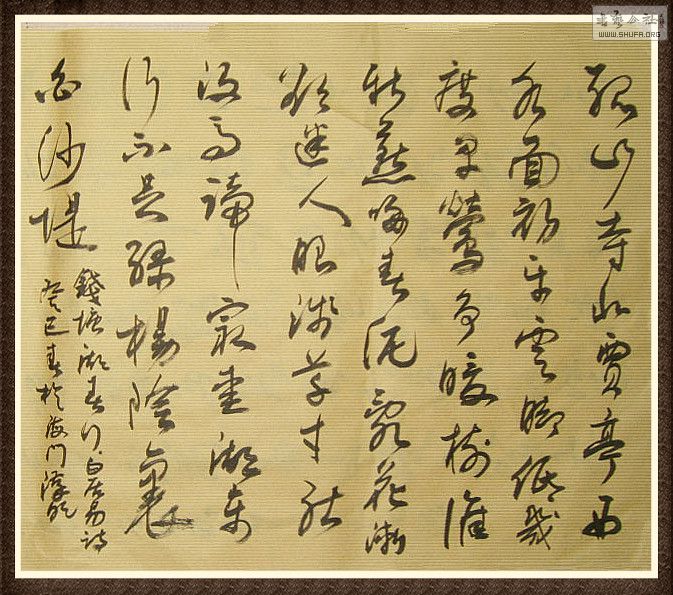 孤山寺北賈亭西
水面初平雲腳低幾
度早鶯爭暖樹誰
新燕啄春泥亂花漸
欲迷人眼淺草才能
沒馬蹄最愛湖東
行不足綠楊陰裏
白沙堤
錢塘湖春行白居易詩
癸巳春於海門
书艺公社
WWW.SHUFA.ORG